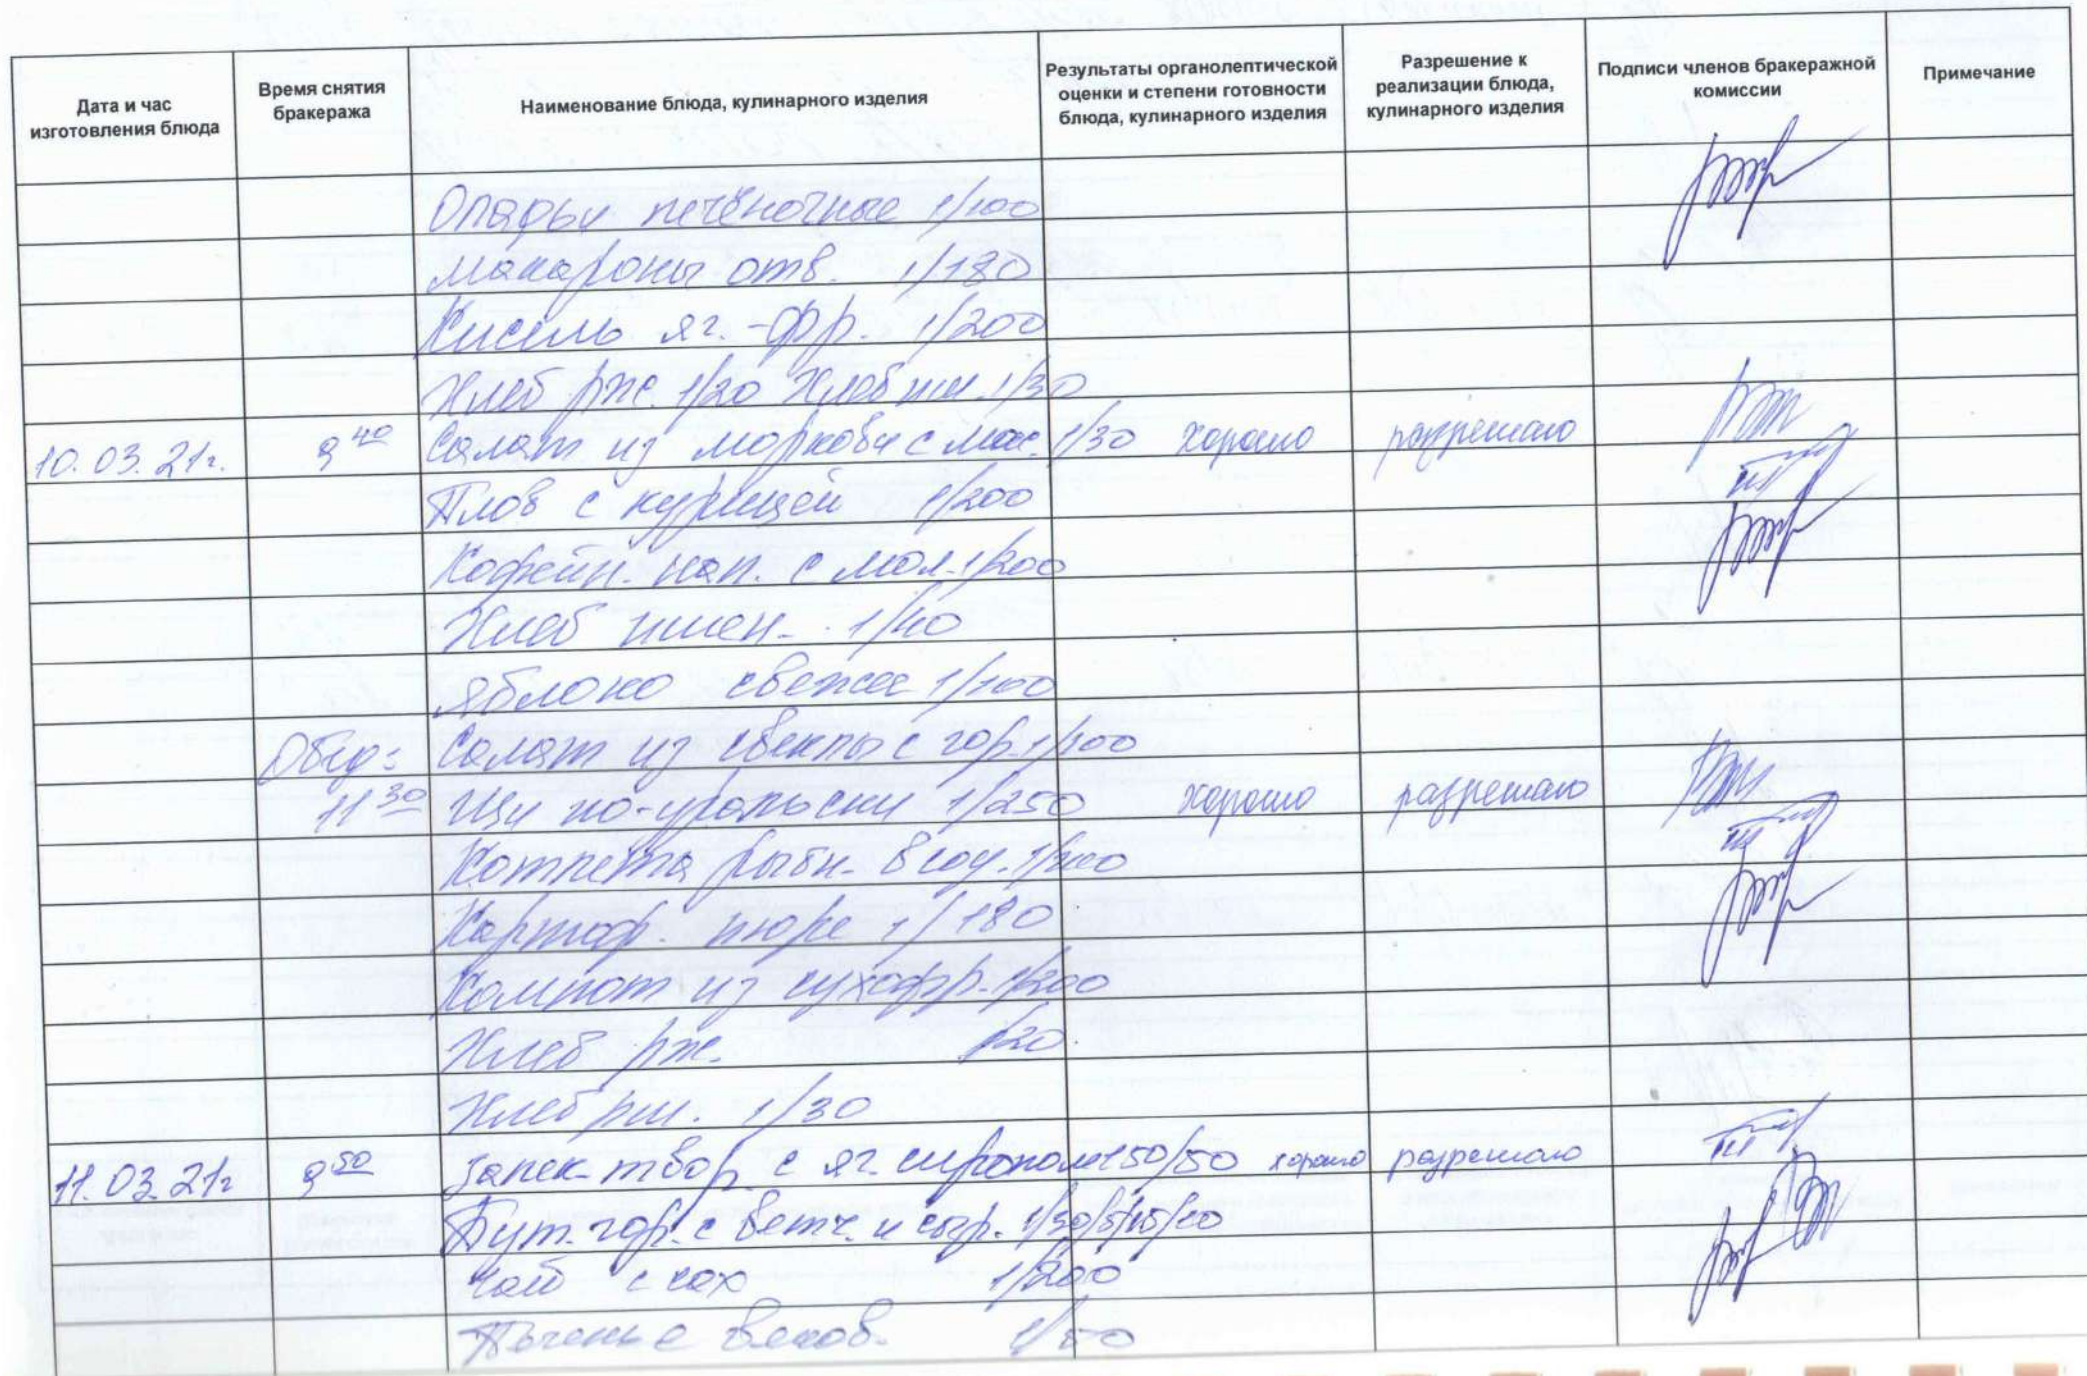 Дата и час изготовления блюда
Время снятия бракеража
Наименование блюда, кулинарного изделия
Результаты органолептической оценки и степени готовности блюда, кулинарного изделия
Разрешение к реализации блюда, кулинарного изделия
Подписи членов бракеражной комиссии
Примечание
Оладьи печёночные 1/100
Макароны отв. 1/180
Кисель яг.-фр. 1/200
Хлеб рж. 1/20 Хлеб пш. 1/30
10.03.21г. 9 40 Салат из моркови с мас. 1/30 хорошо разрешаю
Плов с курицей 1/200
Кофейн. нап. с мол. 1/200
Хлеб пшен. 1/40
Яблоко свежее 1/100
Обед: Салат из свеклы с гор. 1/100
11 30 Щи по-уральски 1/250 хорошо разрешаю
Котлета рыбн. в соу. 1/100
Картоф. пюре 1/180
Компот из сухофр. 1/200
Хлеб рж. 1/20
Хлеб пш. 1/30
11.03.21г 9 50 Запек. твор. с яг. сиропом 150/50 хорошо разрешаю
Бут. гор. с ветч. и сыр.
Чай с сах 1/200
Печенье весов. 1/50